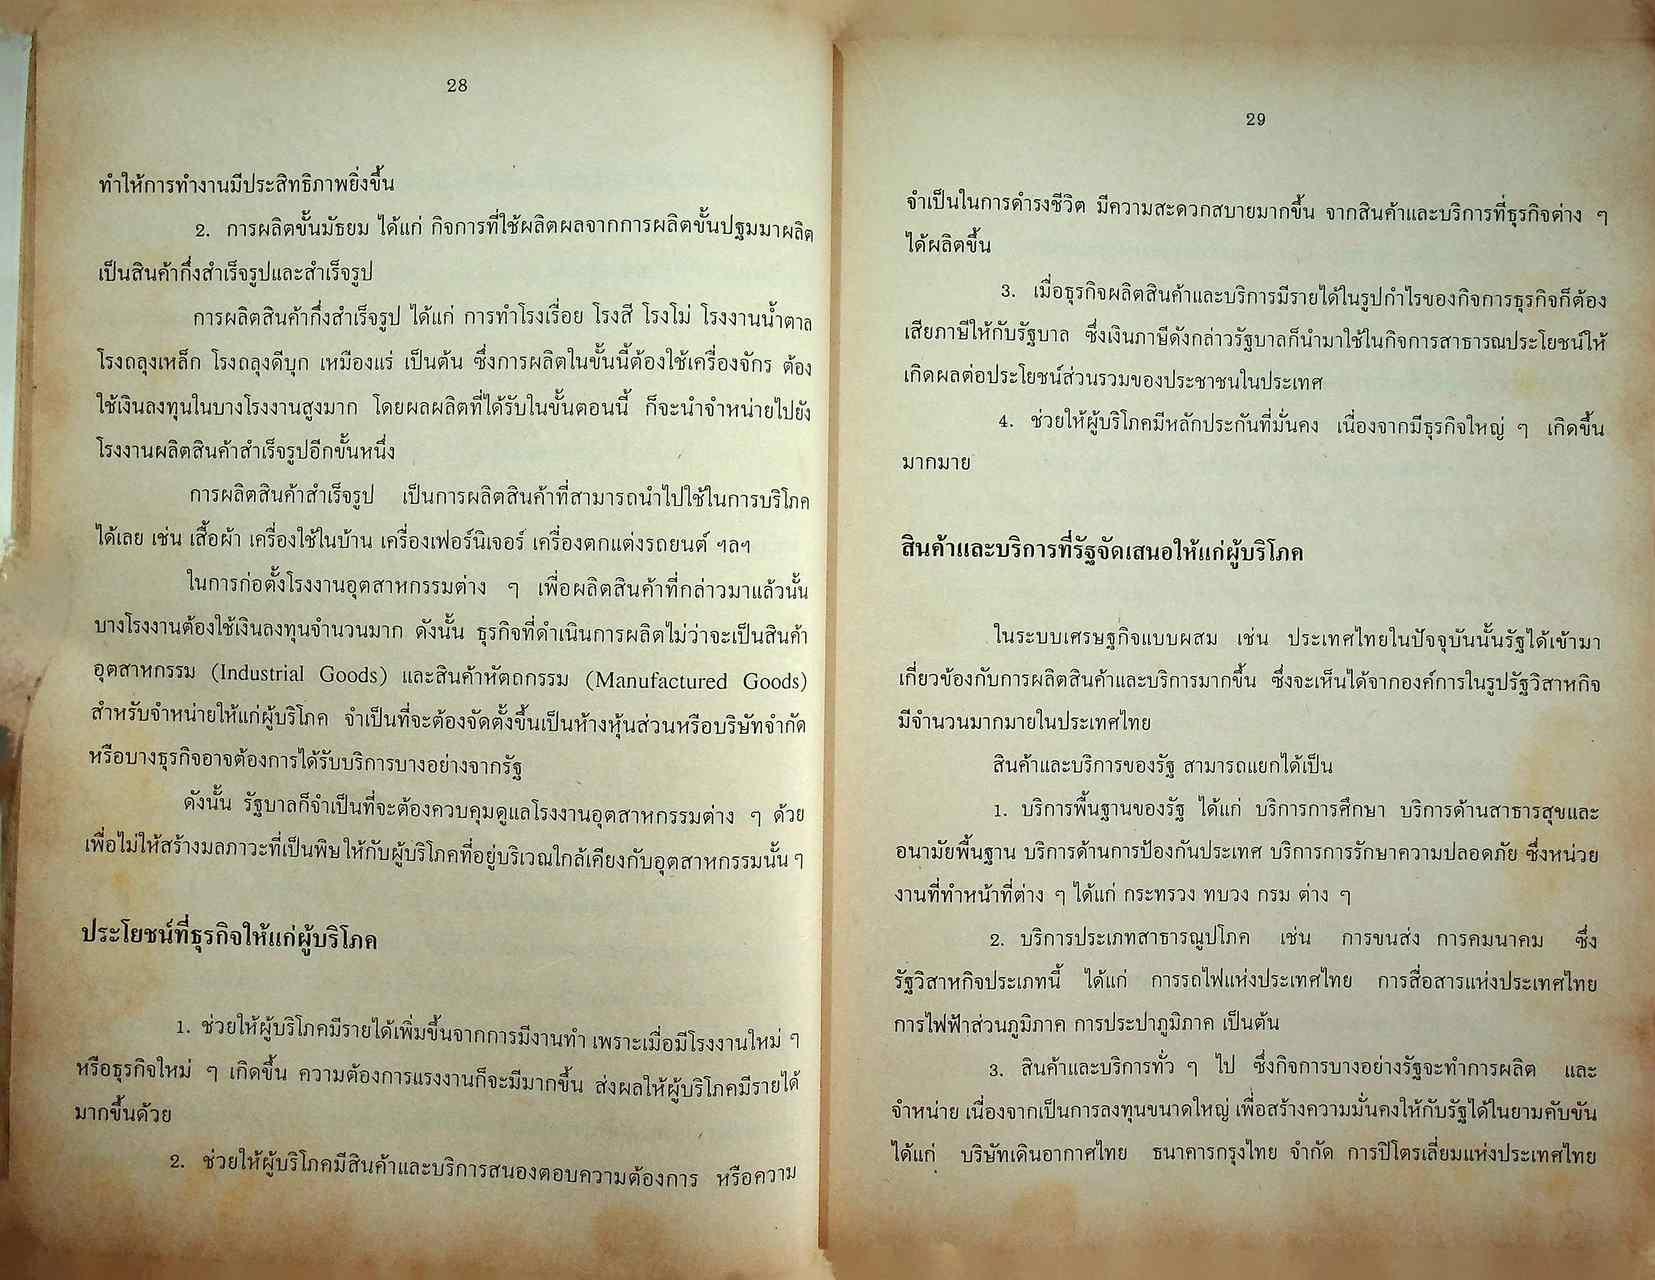 28
ทำให้การทำงานมีประสิทธิภาพยิ่งขึ้น
2. การผลิตขั้นมัธยม ได้แก่ กิจการที่ใช้ผลิตผลจากการผลิตขั้นปฐมมาผลิต
เป็นสินค้ากึ่งสำเร็จรูปและสำเร็จรูป
การผลิตสินค้ากึ่งสำเร็จรูป ได้แก่ การทำโรงเรื่อย โรงสี โรงโม่ โรงงานน้ำตาล
โรงถลุงเหล็ก โรงถลุงดีบุก เหมืองแร่ เป็นต้น ซึ่งการผลิตในขั้นนี้ต้องใช้เครื่องจักร ต้อง
ใช้เงินลงทุนในบางโรงงานสูงมาก โดยผลผลิตที่ได้รับในขั้นตอนนี้ ก็จะนำจำหน่ายไปยัง
โรงงานผลิตสินค้าสำเร็จรูปอีกขั้นหนึ่ง
การผลิตสินค้าสำเร็จรูป เป็นการผลิตสินค้าที่สามารถนำไปใช้ในการบริโภค
ได้เลย เช่น เสื้อผ้า เครื่องใช้ในบ้าน เครื่องเฟอร์นิเจอร์ เครื่องตกแต่งรถยนต์ ฯลฯ
ในการก่อตั้งโรงงานอุตสาหกรรมต่าง ๆ เพื่อผลิตสินค้าที่กล่าวมาแล้วนั้น
บางโรงงานต้องใช้เงินลงทุนจำนวนมาก ดังนั้น ธุรกิจที่ดำเนินการผลิตไม่ว่าจะเป็นสินค้า
อุตสาหกรรม (Industrial Goods) และสินค้าหัตถกรรม (Manufactured Goods)
สำหรับจำหน่ายให้แก่ผู้บริโภค จำเป็นที่จะต้องจัดตั้งขึ้นเป็นห้างหุ้นส่วนหรือบริษัทจำกัด
หรือบางธุรกิจอาจต้องการได้รับบริการบางอย่างจากรัฐ
ดังนั้น รัฐบาลก็จำเป็นที่จะต้องควบคุมดูแลโรงงานอุตสาหกรรมต่าง ๆ ด้วย
เพื่อไม่ให้สร้างมลภาวะที่เป็นพิษให้กับผู้บริโภคที่อยู่บริเวณใกล้เคียงกับอุตสาหกรรมนั้น ๆ
ประโยชน์ที่ธุรกิจให้แก่ผู้บริโภค
1. ช่วยให้ผู้บริโภคมีรายได้เพิ่มขึ้นจากการมีงานทำ เพราะเมื่อมีโรงงานใหม่ ๆ
หรือธุรกิจใหม่ ๆ เกิดขึ้น ความต้องการแรงงานก็จะมีมากขึ้น ส่งผลให้ผู้บริโภคมีรายได้
มากขึ้นด้วย
2. ช่วยให้ผู้บริโภคมีสินค้าและบริการสนองตอบความต้องการ หรือความ
29
จำเป็นในการดำรงชีวิต มีความสะดวกสบายมากขึ้น จากสินค้าและบริการที่ธุรกิจต่าง ๆ
ได้ผลิตขึ้น
3. เมื่อธุรกิจผลิตสินค้าและบริการมีรายได้ในรูปกำไรของกิจการธุรกิจก็ต้อง
เสียภาษีให้กับรัฐบาล ซึ่งเงินภาษีดังกล่าวรัฐบาลก็นำมาใช้ในกิจการสาธารณประโยชน์ให้
เกิดผลต่อประโยชน์ส่วนรวมของประชาชนในประเทศ
4. ช่วยให้ผู้บริโภคมีหลักประกันที่มั่นคง เนื่องจากมีธุรกิจใหญ่ ๆ เกิดขึ้น
มากมาย
สินค้าและบริการที่รัฐจัดเสนอให้แก่ผู้บริโภค
ในระบบเศรษฐกิจแบบผสม เช่น ประเทศไทยในปัจจุบันนั้นรัฐได้เข้ามา
เกี่ยวข้องกับการผลิตสินค้าและบริการมากขึ้น ซึ่งจะเห็นได้จากองค์การในรูปรัฐวิสาหกิจ
มีจำนวนมากมายในประเทศไทย
สินค้าและบริการของรัฐ สามารถแยกได้เป็น
1. บริการพื้นฐานของรัฐ ได้แก่ บริการการศึกษา บริการด้านสาธารสุขและ
อนามัยพื้นฐาน บริการด้านการป้องกันประเทศ บริการการรักษาความปลอดภัย ซึ่งหน่วย
งานที่ทำหน้าที่ต่าง ๆ ได้แก่ กระทรวง ทบวง กรม ต่าง ๆ
2. บริการประเภทสาธารณูปโภค เช่น การขนส่ง การคมนาคม ซึ่ง
รัฐวิสาหกิจประเภทนี้ ได้แก่ การรถไฟแห่งประเทศไทย การสื่อสารแห่งประเทศไทย
การไฟฟ้าส่วนภูมิภาค การประปาภูมิภาค เป็นต้น
3. สินค้าและบริการทั่ว ๆ ไป ซึ่งกิจการบางอย่างรัฐจะทำการผลิต และ
จำหน่าย เนื่องจากเป็นการลงทุนขนาดใหญ่ เพื่อสร้างความมั่นคงให้กับรัฐได้ในยามคับขัน
ได้แก่ บริษัทเดินอากาศไทย ธนาคารกรุงไทย จำกัด การปิโตรเลี่ยมแห่งประเทศไทย